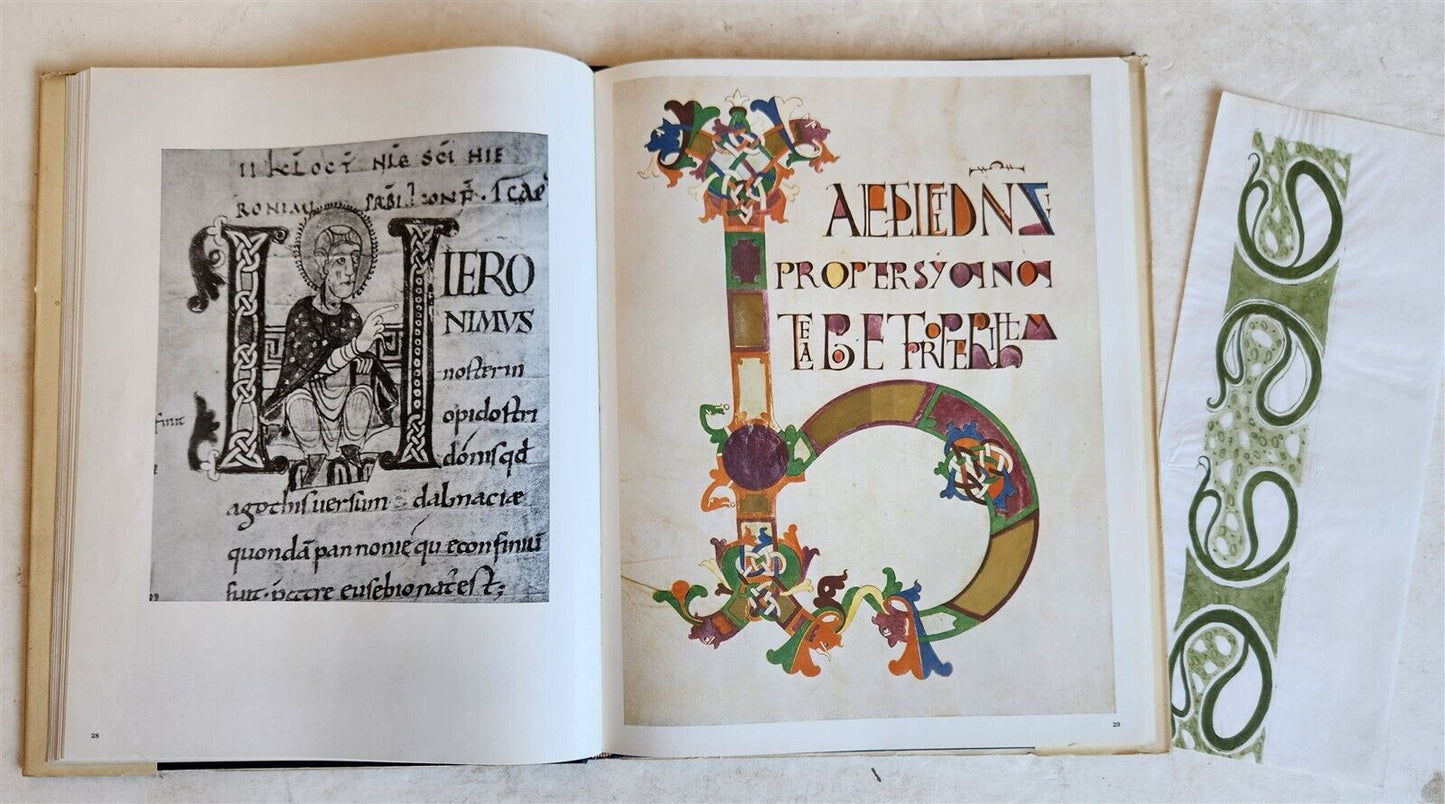 II KL OCT̄ NL̄E SCĪ HIE
RONIMI P̄RBI. 7 CONF̄.
HIERO
NIMVS
noster in
opido stri
dónis qd̄
agothis uersum dalmaciæ
quondā pannonię que confiniū
fuit. patre eusebio nat' est;
28
HAEC DICIT DN̄S
PROPTER SYON NON
TACEBO ET PROPTER HIERLM
29